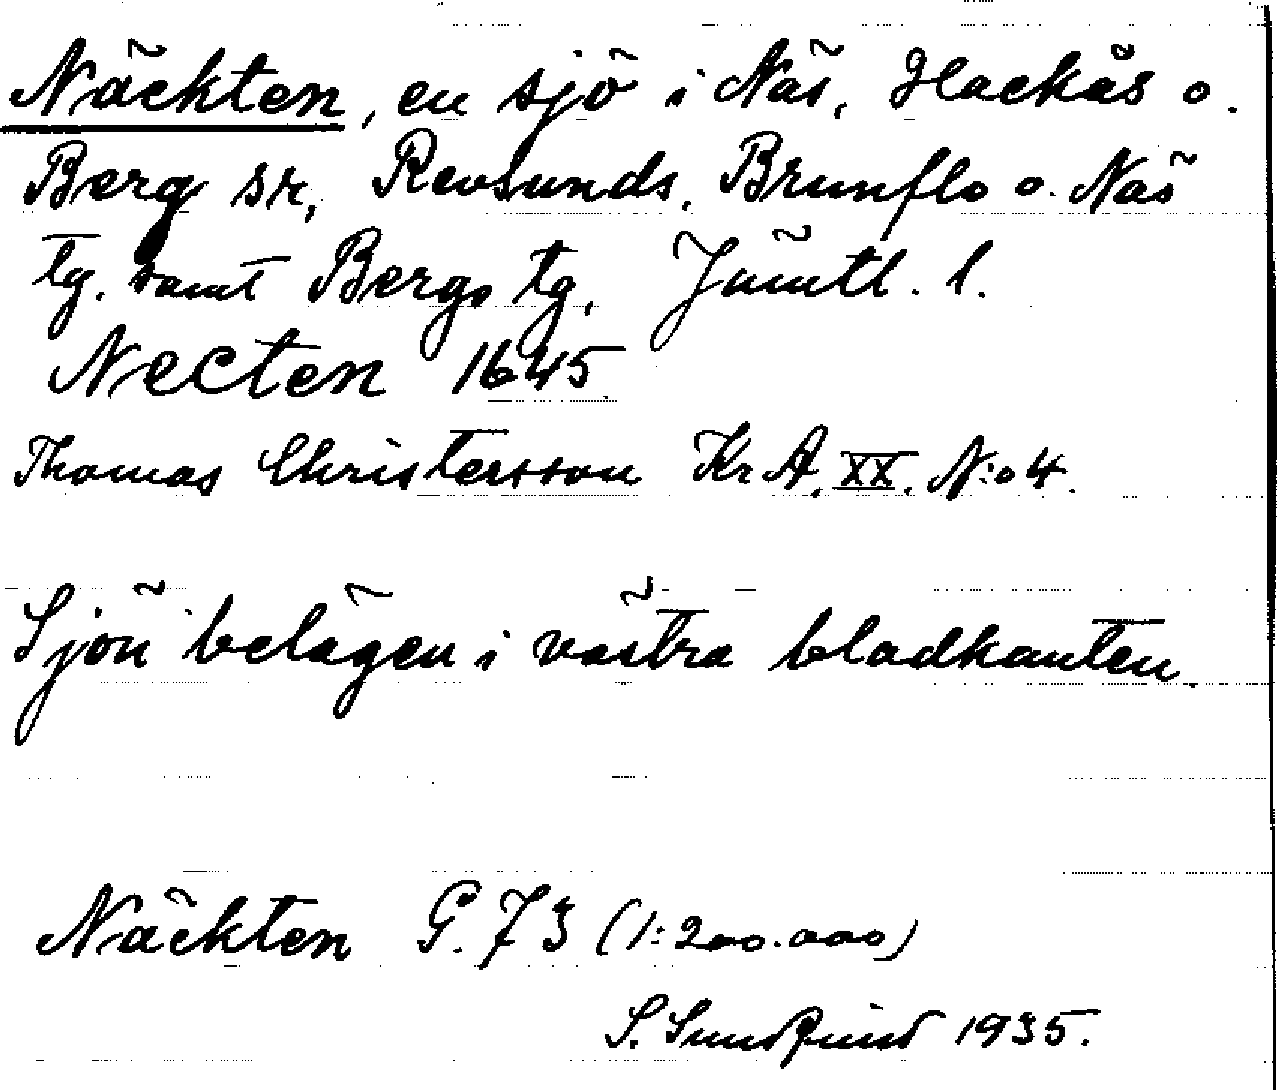 Näckten, en sjö i Näs, Hackås o.
Berg sn, Revsunds, Brunflo o. Näs
tg. samt Bergs tg, Jämtl. l.
Necten 1645
Thomas Christersson Kr A. XX. N:o 4.
Sjön belägen i västra bladkanten.
Näckten G. 73 (1:200.000)
S. Sundquist 1935.